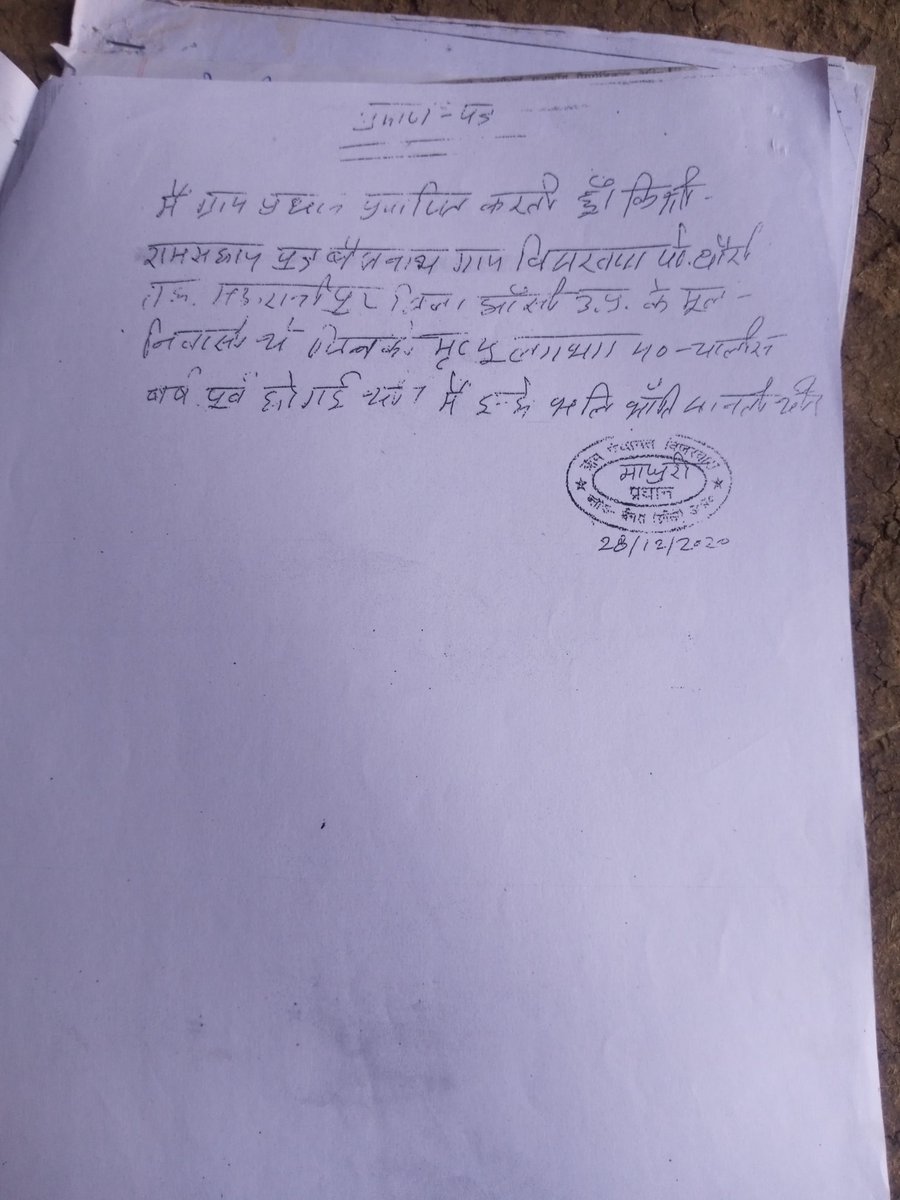 प्रमाण-पत्र
मैं ग्राम प्रधान प्रमाणित करती हूँ कि श्री
रामसहाय पुत्र बैजनाथ ग्राम
मऊरानीपुर जिला झाँसी उ.प्र. के मूल
निवासी थे जिनकी मृत्यु लगभग ४०-चालीस
वर्ष पूर्व हो गई थी। मैं इन्हे भलि भाँति जानती थी।
ग्राम पंचायत
माधुरी
प्रधान
28/12/2020